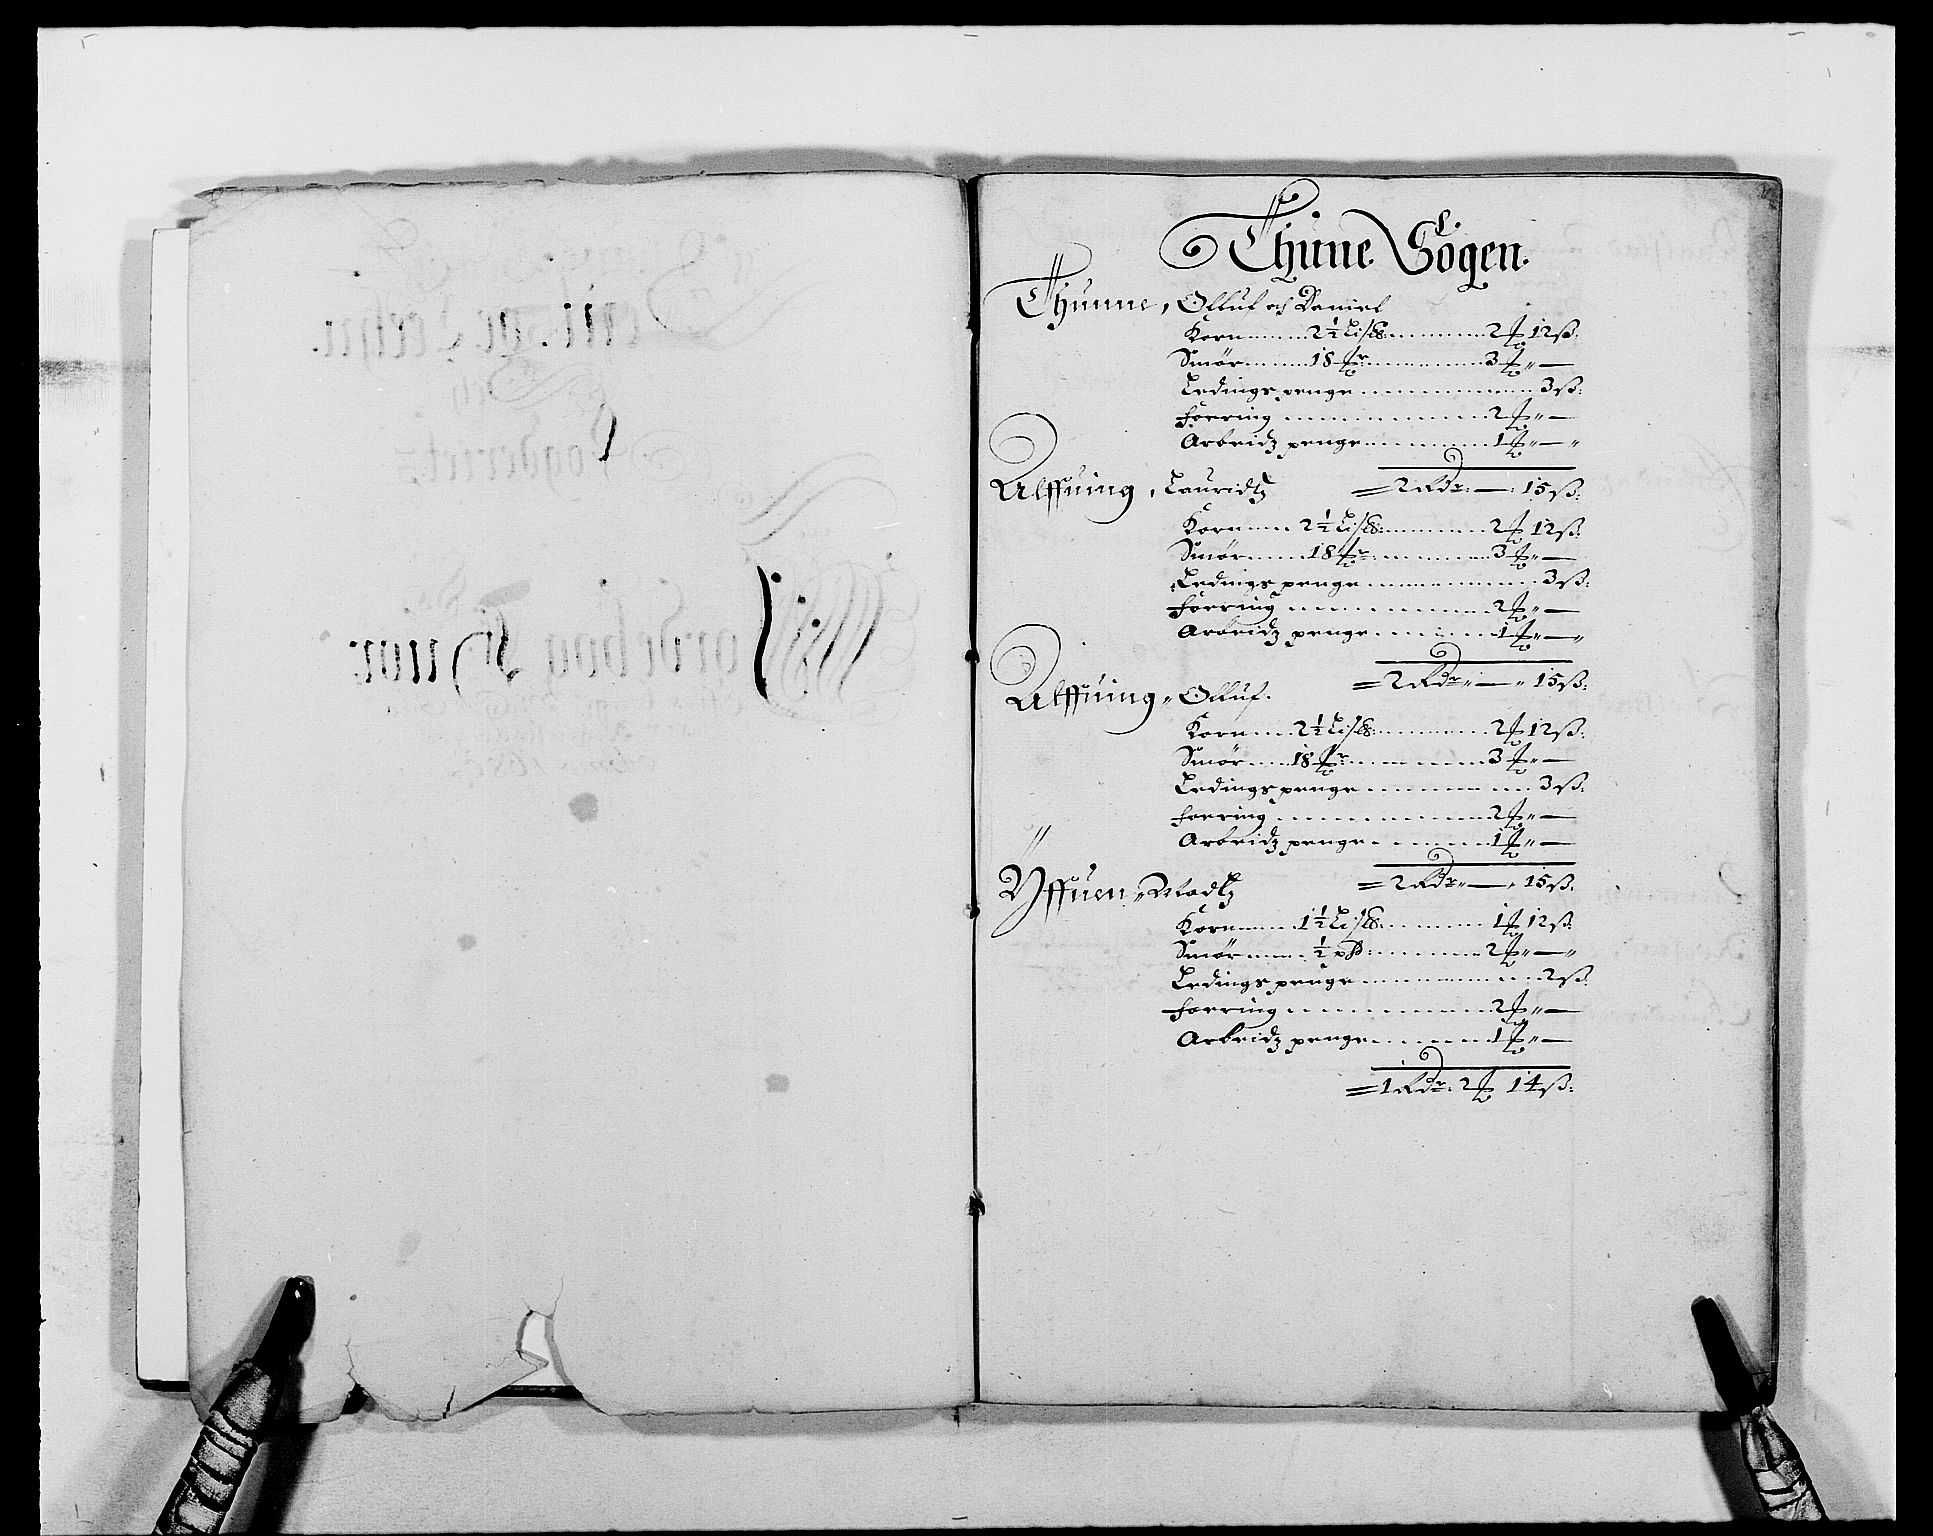 Thune Sogen.
Thunne, Olluf och Daniel
Korn 2½ Lispd: 2 ℔ 12 ß:
Smör 18 ℔r 3 ℔ " —
Ledings penge 3 ß:
Foering 2 ℔ " —
Arbeidz penge 1 ℔ " — "
= 2 Rdr: — : 15 ß:
Alffuing, Lauridtz
Korn 2½ Lispd: 2 ℔ 12 ß:
Smör 18 ℔r 3 ℔ " —
Ledings penge 3 ß:
Foering 2 ℔ " —
Arbeidz penge 1 ℔ " — "
= 2 Rdr " — " 15 ß:
Alffuing " Olluf.
Korn 2½ Lispd: 2 ℔ 12 ß:
Smör 18 ℔r 3 ℔ " —
Ledings penge 3 ß:
Foering 2 ℔ " —
Arbeidz penge 1 ℔ " —
= 2 Rdr " — " 15 ß:
Yffuen " Madtz
Korn 1½ Lispd: 1 ℔ 12 ß:
Smör ½ pd: 2 ℔ " — "
Ledings penge 2 ß:
Foering 2 ℔ " —
Arbeidz penge 1 ℔ " —
= 1 Rdr: 2 ℔ 14 ß: